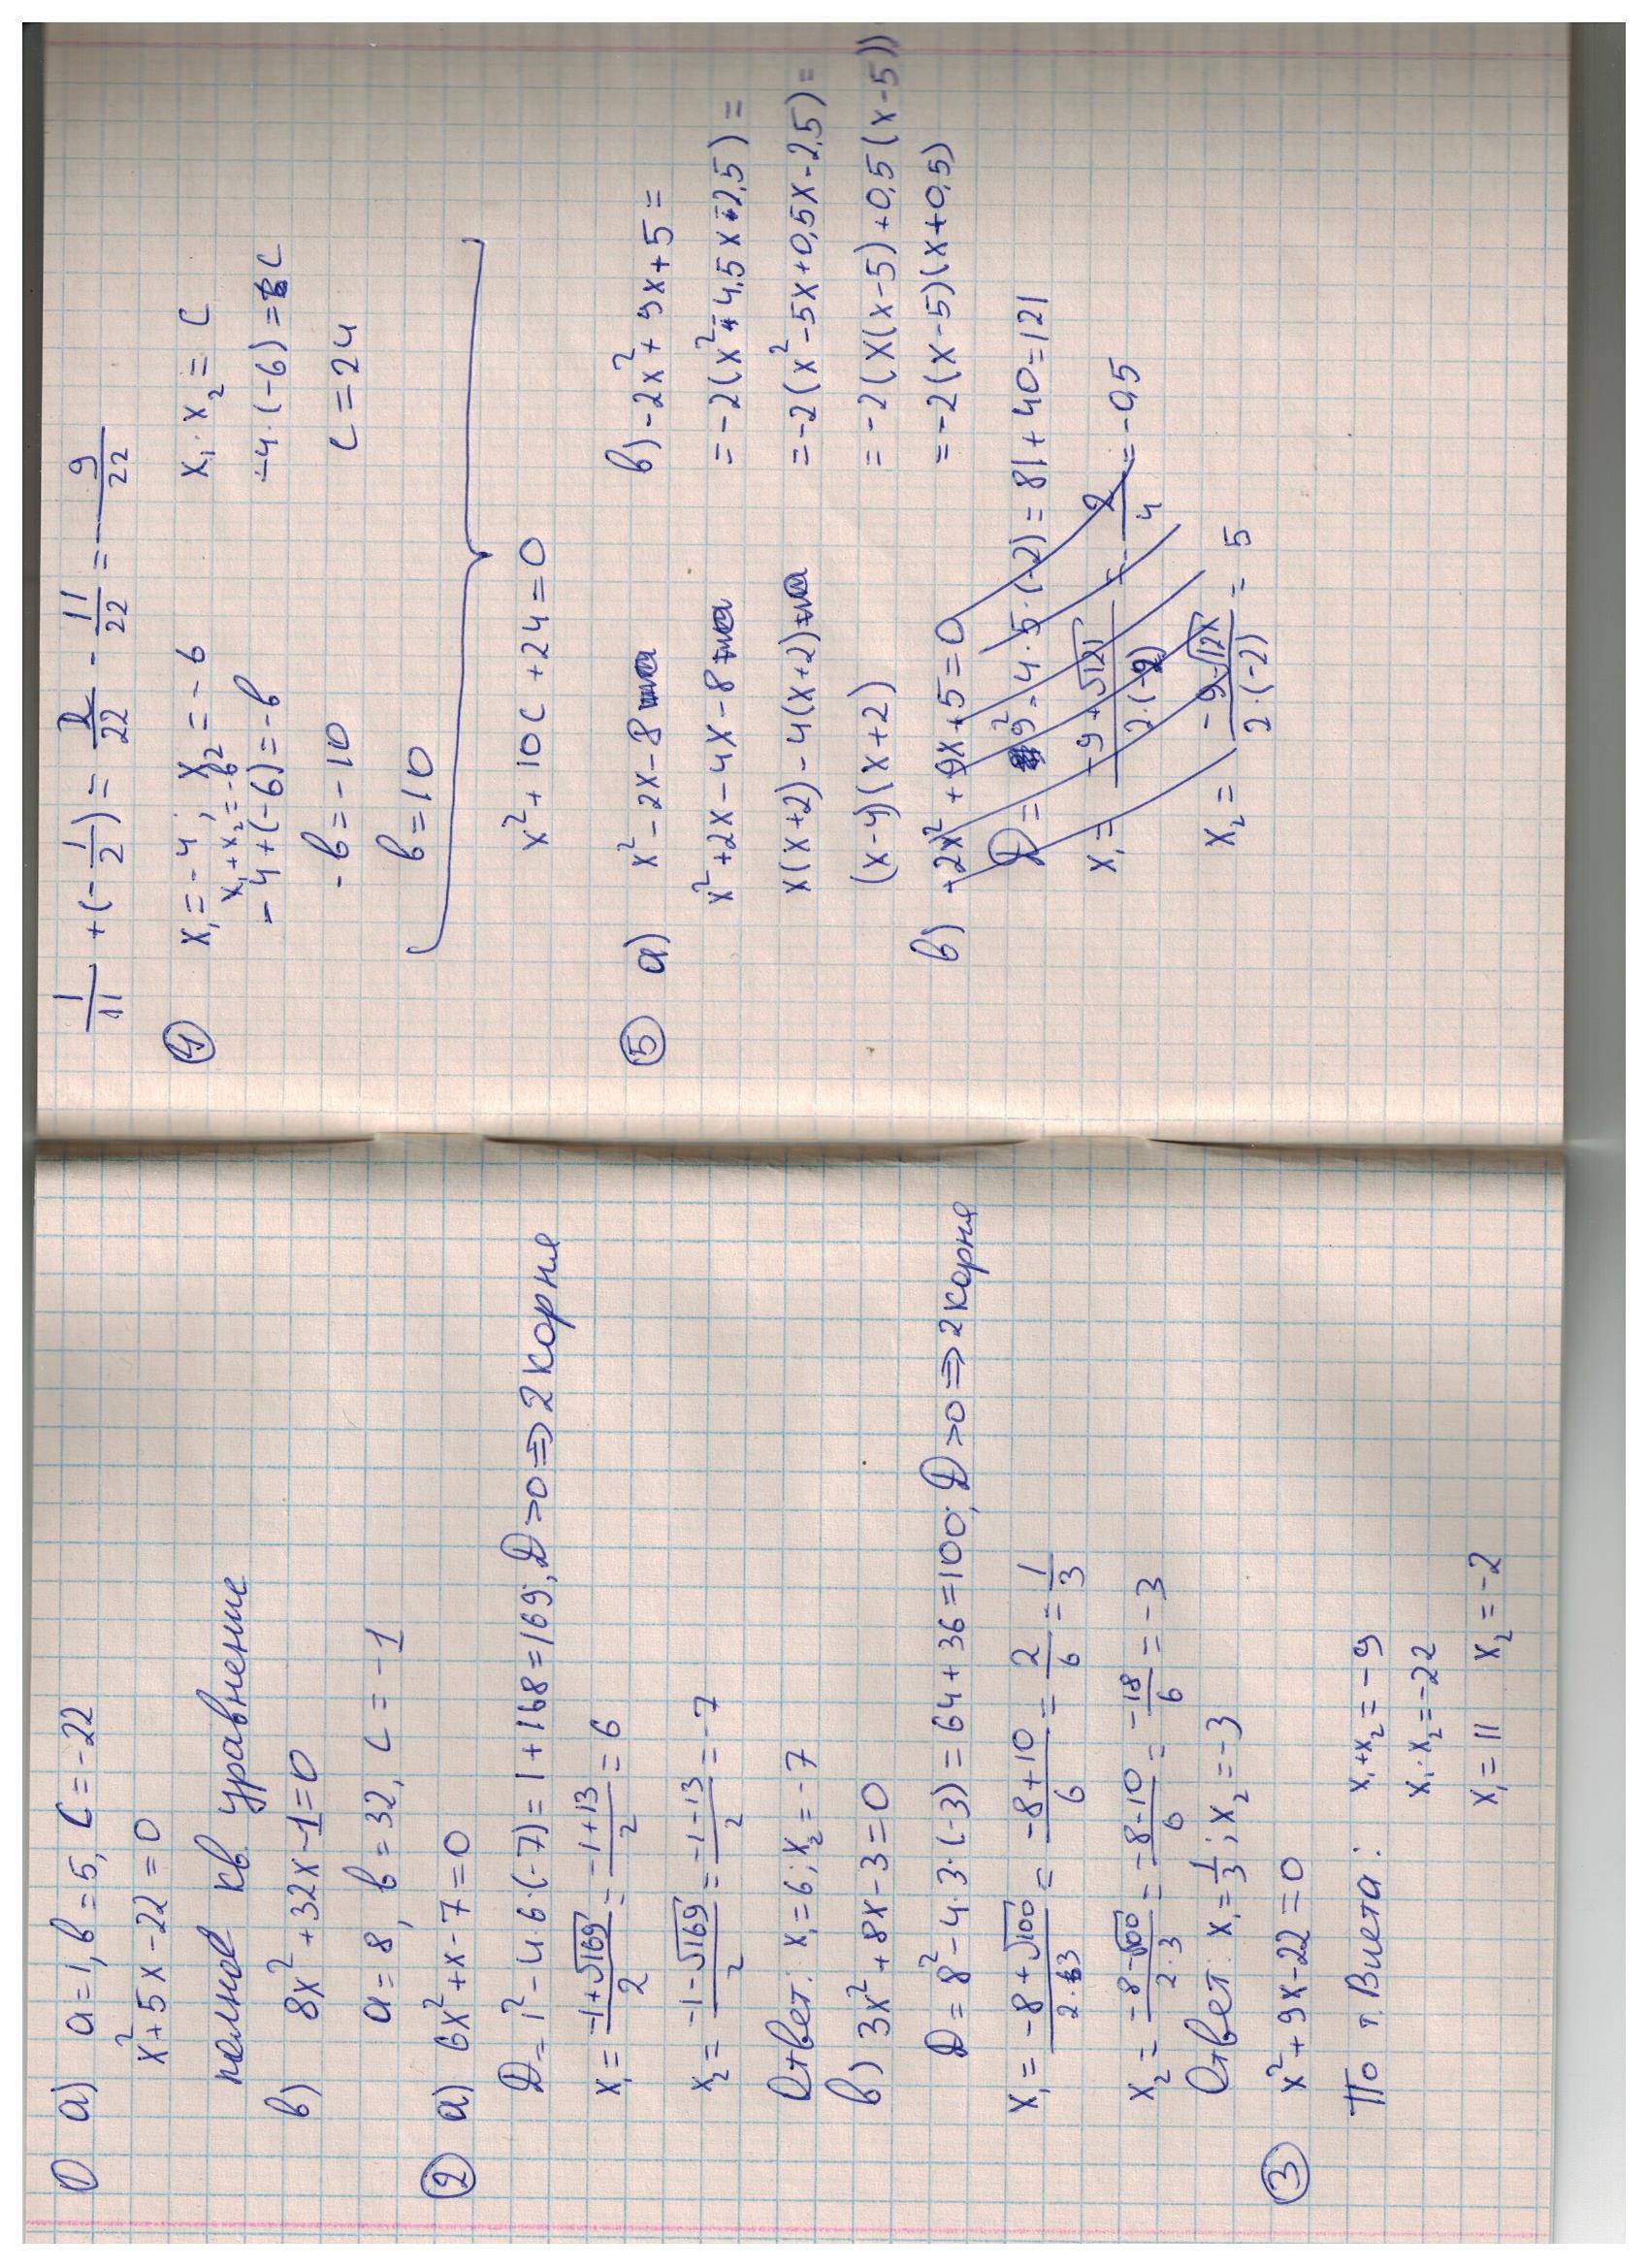 ① а) a=1, b=5, c=-22
x²+5x-22=0
полное кв. уравнение
в) 8x²+32x-1=0
a=8, b=32, c=-1
② а) 6x²+x-7=0
D=1²-4·6·(-7)=1+168=169; D>0⇒2 корня
x₁=(-1+√169)/2=(-1+13)/2=6
x₂=(-1-√169)/2=(-1-13)/2=-7
Ответ: x₁=6; x₂=-7
в) 3x²+8x-3=0
D=8²-4·3·(-3)=64+36=100; D>0⇒2 корня
x₁=(-8+√100)/(2·3)=(-8+10)/6=2/6=1/3
x₂=(-8-√100)/(2·3)=(-8-10)/6=-18/6=-3
Ответ: x₁=1/3; x₂=-3
③ x²+9x-22=0
По т. Виета: x₁+x₂=-9
x₁·x₂=-22
x₁=11 x₂=-2
1/11+(-1/2)=2/22-11/22=-9/22
④ x₁=-4; x₂=-6 x₁·x₂=c
x₁+x₂=-b
-4+(-6)=-b -4·(-6)=c
-b=-10 c=24
b=10
x²+10c+24=0
⑤ а) x²-2x-8 в) -2x²+9x+5=
x²+2x-4x-8 =-2(x²-4,5x-2,5)=
x(x+2)-4(x+2) =-2(x²-5x+0,5x-2,5)=
(x-4)(x+2) =-2(x(x-5)+0,5(x-5))
=-2(x-5)(x+0,5)
в) +2x²+9x+5=0
D=9²-4·5·(-2)=81+40=121
x₁=(-9+√121)/(2·(-2))=-2/4=-0,5
x₂=(-9-√121)/(2·(-2))=5